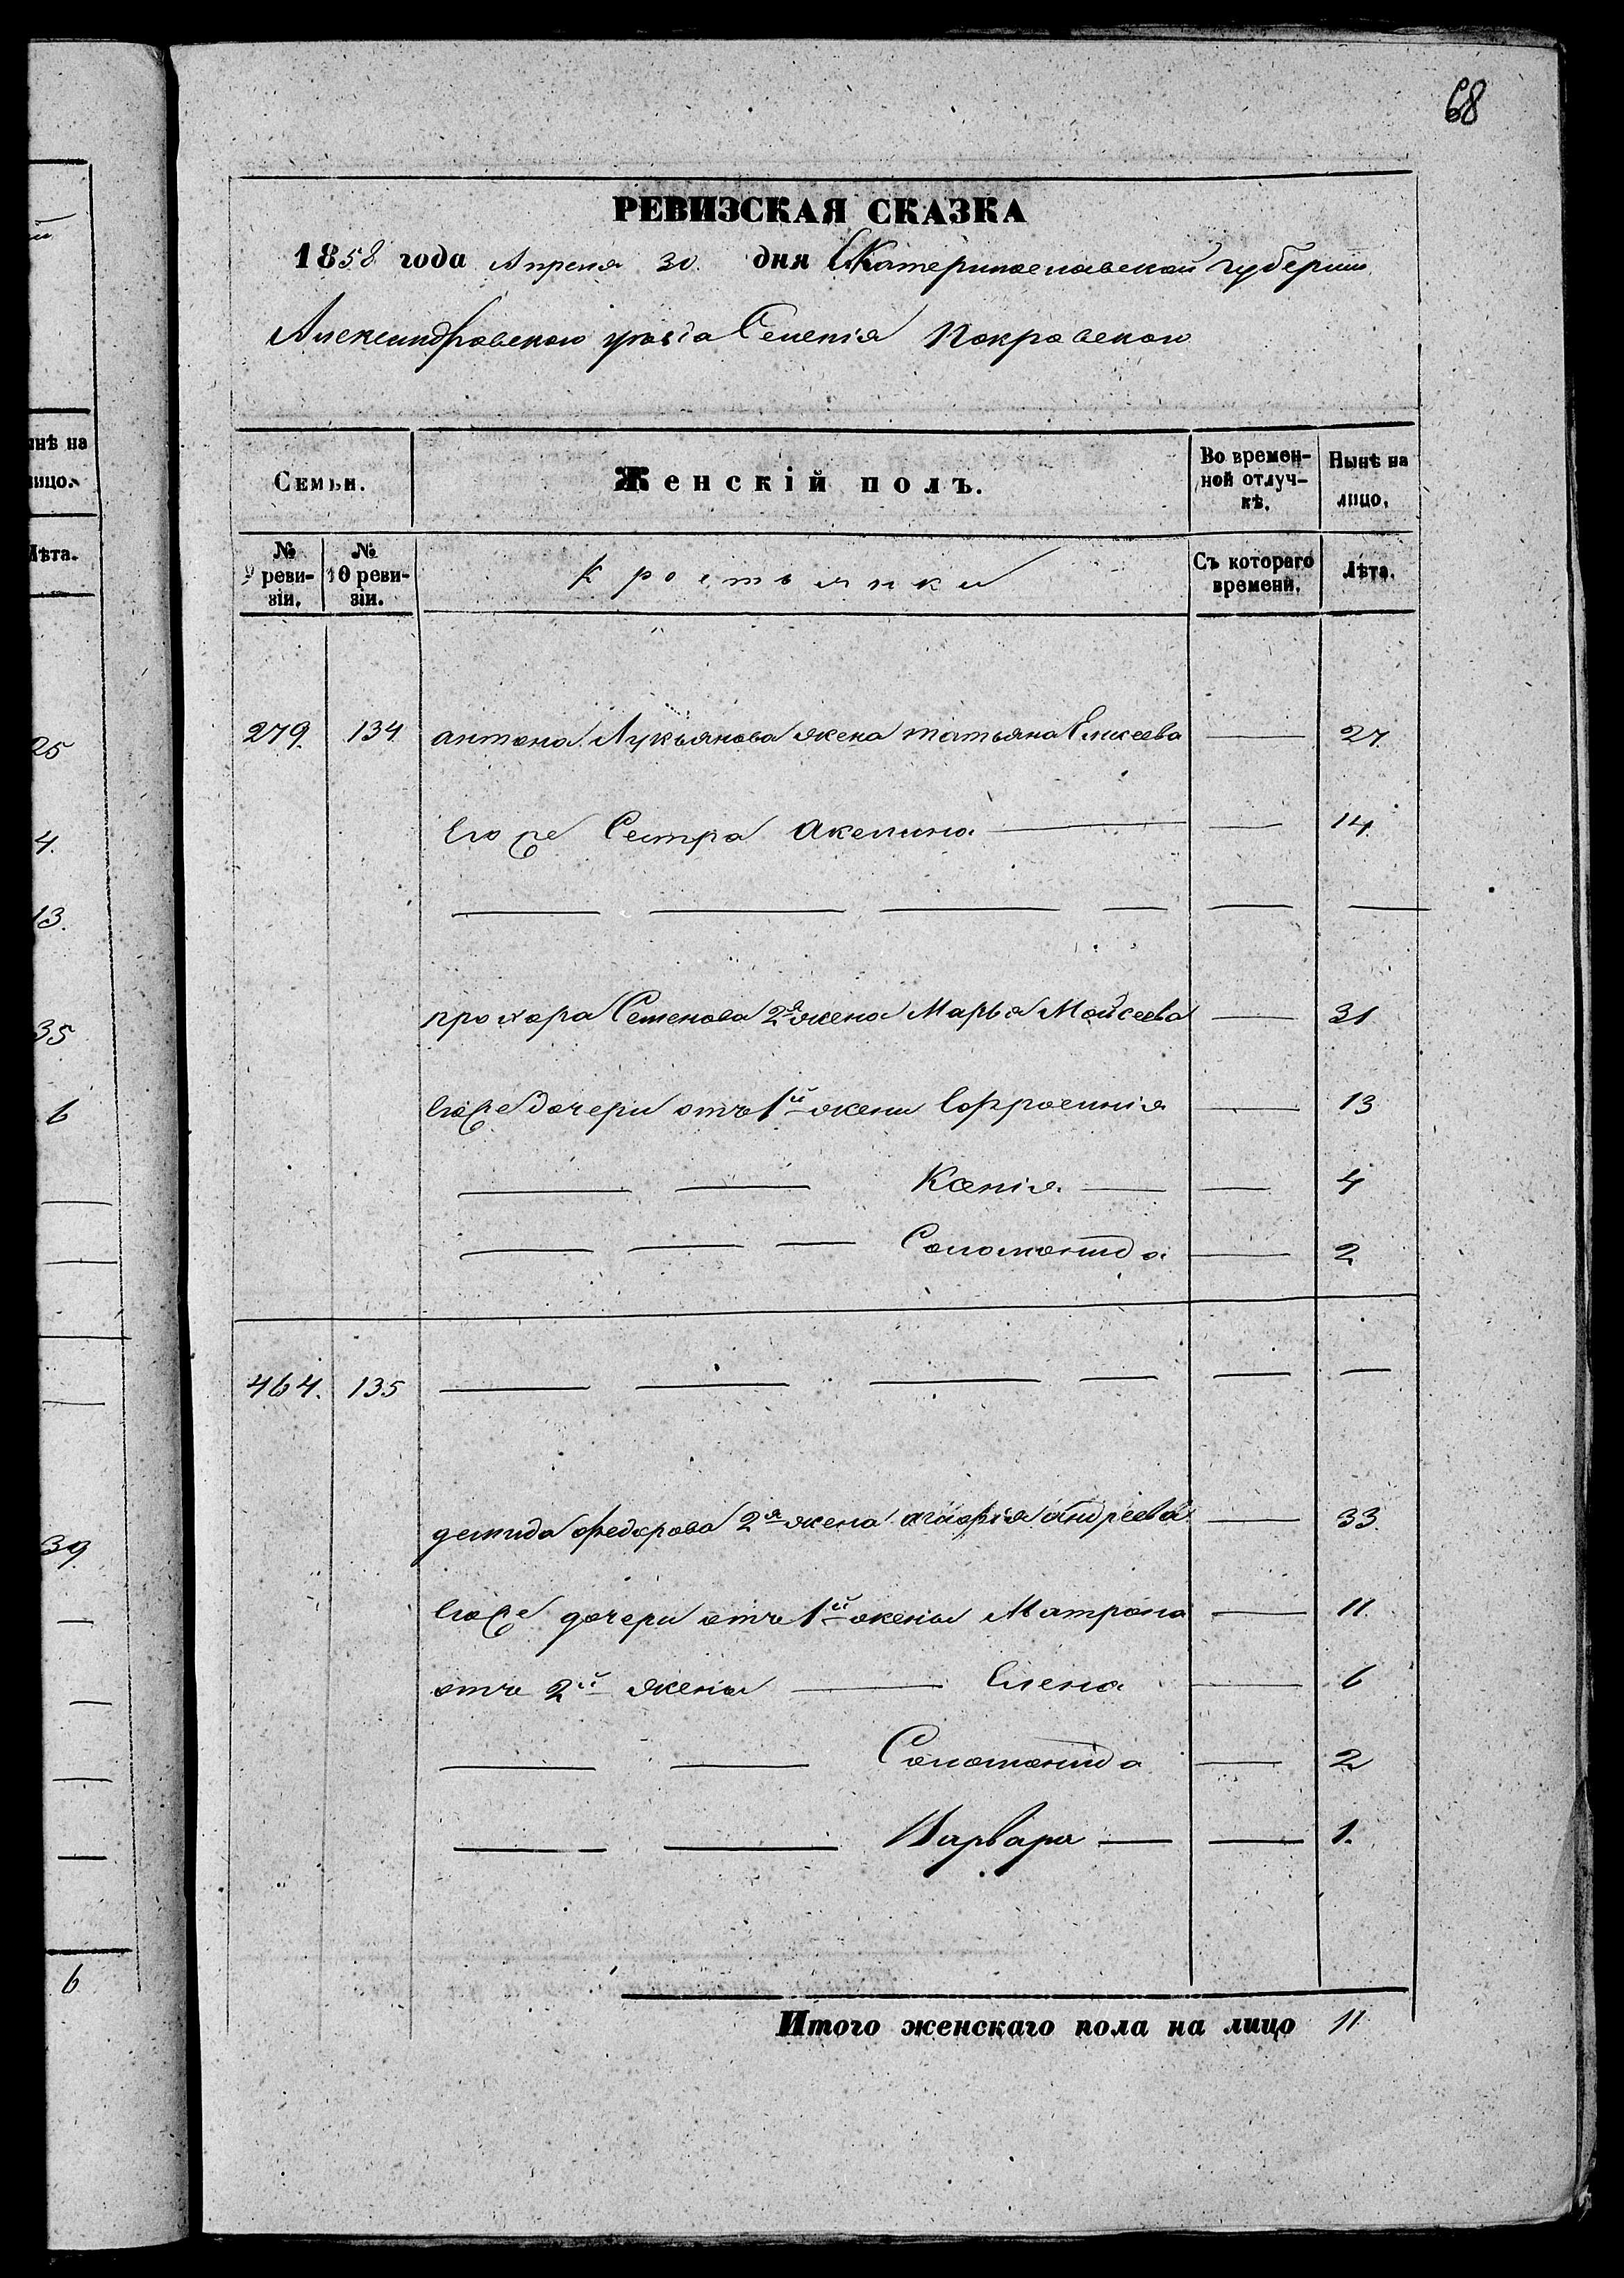 68
РЕВИЗСКАЯ СКАЗКА
1858 года Апреля 30. дня Екатеринославской губернии
Александровского уезда Селенія Покровского
Семьи. Женскій полъ. Во времен- Нынѣ на
ной отлуч- лицо.
кѣ.
№ № Крестьянки Съ котораго Лѣта.
9 реви- 10 реви- времени.
зіи. зіи.
279. 134 антона Лукьянова жена татьяна Елисеева — 27.
Его же Сестра Акелина — — 14.
— — — — — —
прохора Семенова 2я жена Марья Мойсеева — 31
Егоже дочери отъ 1й жены Ефросинія — 13
— — Ксенія — — 4
— — — Соломонида — 2
464. 135 — — — — — —
демида федорова 2я жена агафія андреева — 33.
Егоже дочери отъ 1й жены Матрона — 11.
отъ 2й жены — Елена — 6
— — Соломонида — 2
— — Варвара — — 1.
Итого женскаго пола на лицо 11
нѣ на
лицо.
Лѣта.
25
4.
13.
35
6
39
6